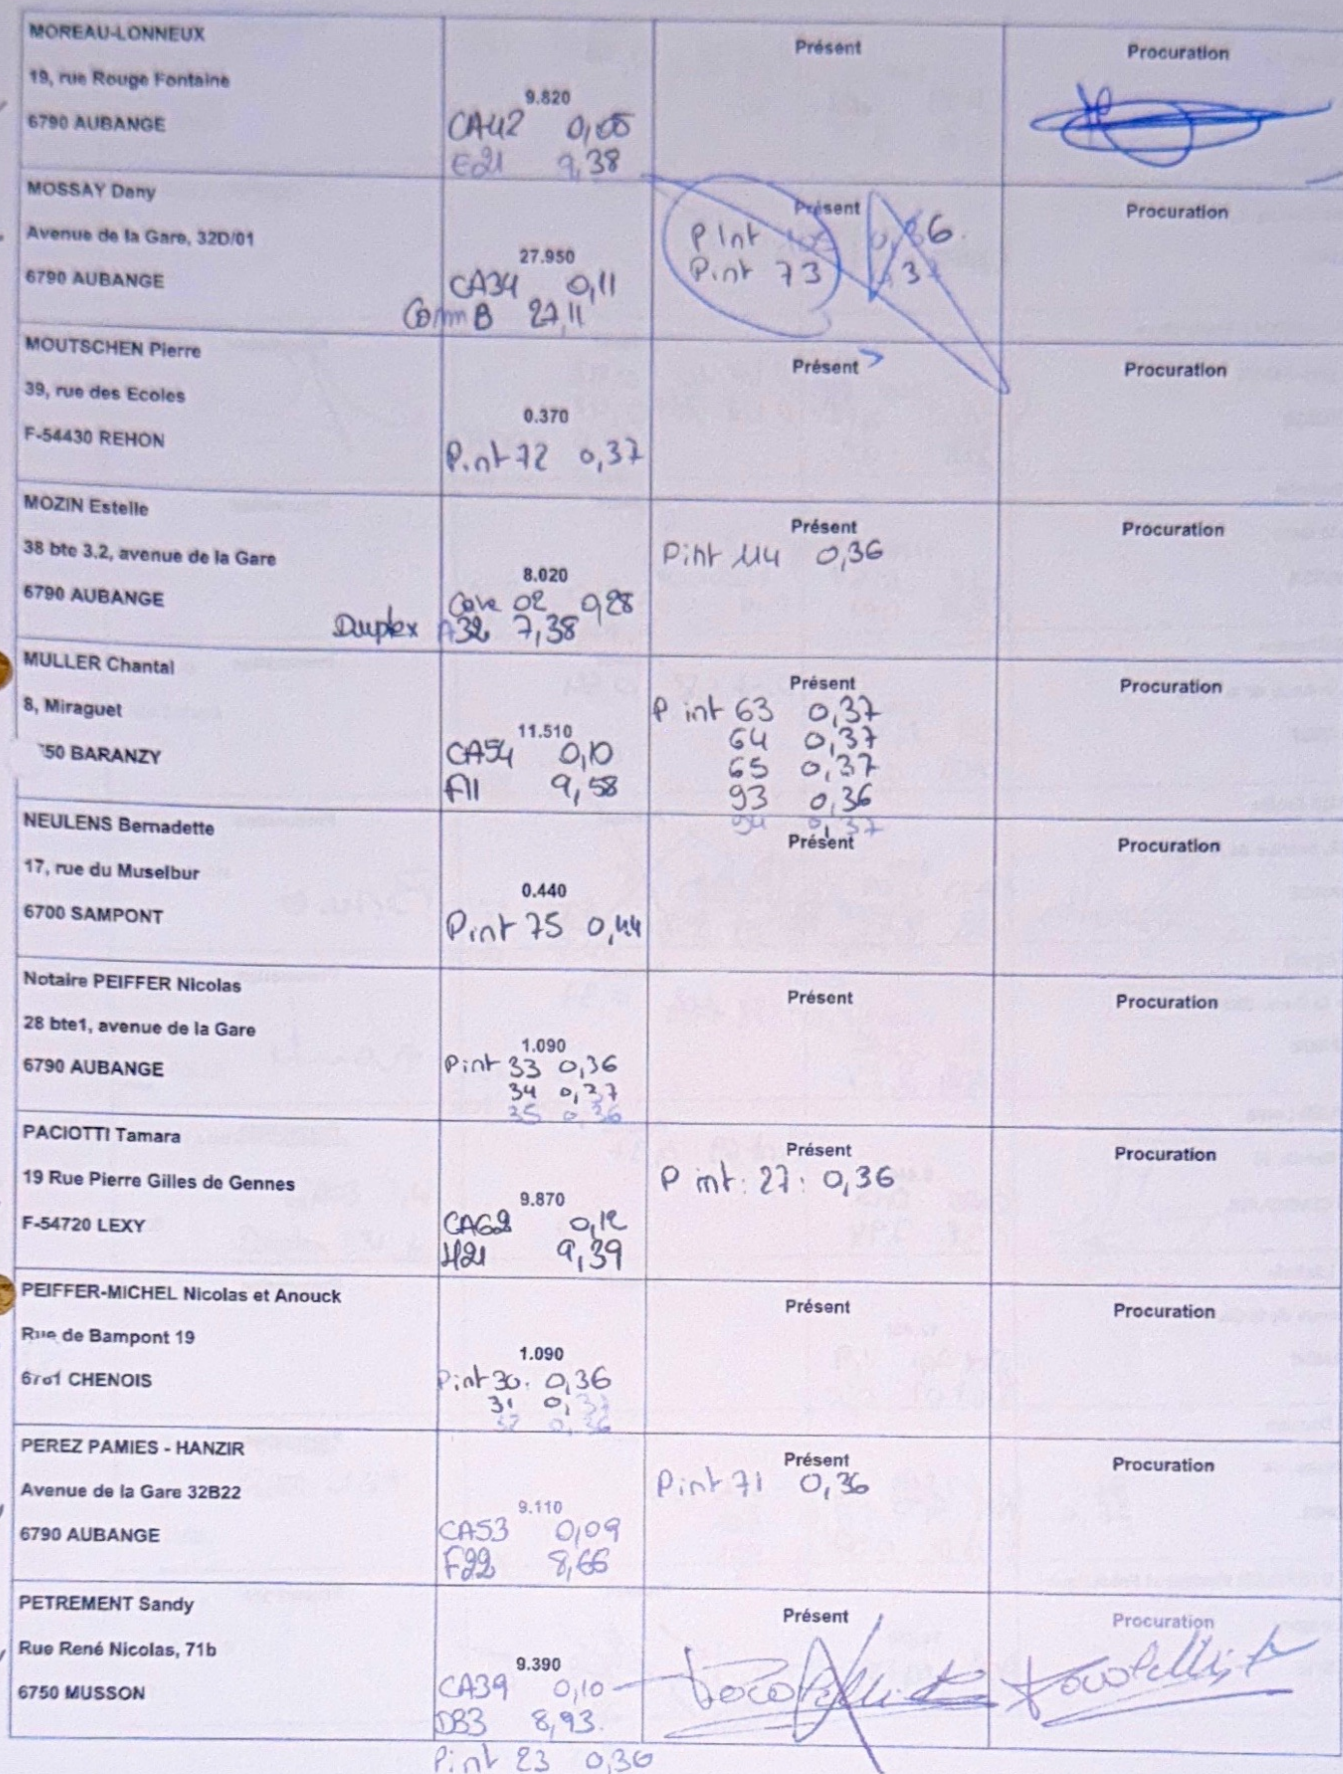 MOREAU-LONNEUX
19, rue Rouge Fontaine
6790 AUBANGE
9.820
CA42 0,05
E21 9,38
Présent
Procuration
MOSSAY Dany
Avenue de la Gare, 32D/01
6790 AUBANGE
27.950
CA34 0,11
Comm B 27,11
Présent
P Int 0,36
P.nt 73
Procuration
MOUTSCHEN Pierre
39, rue des Ecoles
F-54430 REHON
0.370
P.nt 72 0,37
Présent
Procuration
MOZIN Estelle
38 bte 3.2, avenue de la Gare
6790 AUBANGE
8.020
Cave 02 0,28
Duplex A32 7,38
Présent
Pint 114 0,36
Procuration
MULLER Chantal
8, Miraguet
50 BARANZY
11.510
CA54 0,10
F11 9,58
Présent
P int 63 0,37
64 0,37
65 0,37
93 0,36
94 0,37
Procuration
NEULENS Bernadette
17, rue du Muselbur
6700 SAMPONT
0.440
P.nt 75 0,44
Présent
Procuration
Notaire PEIFFER Nicolas
28 bte1, avenue de la Gare
6790 AUBANGE
1.090
Pint 33 0,36
34 0,37
35 0,36
Présent
Procuration
PACIOTTI Tamara
19 Rue Pierre Gilles de Gennes
F-54720 LEXY
9.870
CA62 0,12
H21 9,39
Présent
P int: 27: 0,36
Procuration
PEIFFER-MICHEL Nicolas et Anouck
Rue de Bampont 19
6761 CHENOIS
1.090
Pint 30. 0,36
31 0,37
32 0,36
Présent
Procuration
PEREZ PAMIES - HANZIR
Avenue de la Gare 32B22
6790 AUBANGE
9.110
CA53 0,09
F22 8,66
Présent
Pint 71 0,36
Procuration
PETREMENT Sandy
Rue René Nicolas, 71b
6750 MUSSON
9.390
CA39 0,10
DB3 8,93.
Pint 23 0,36
Présent
Procuration